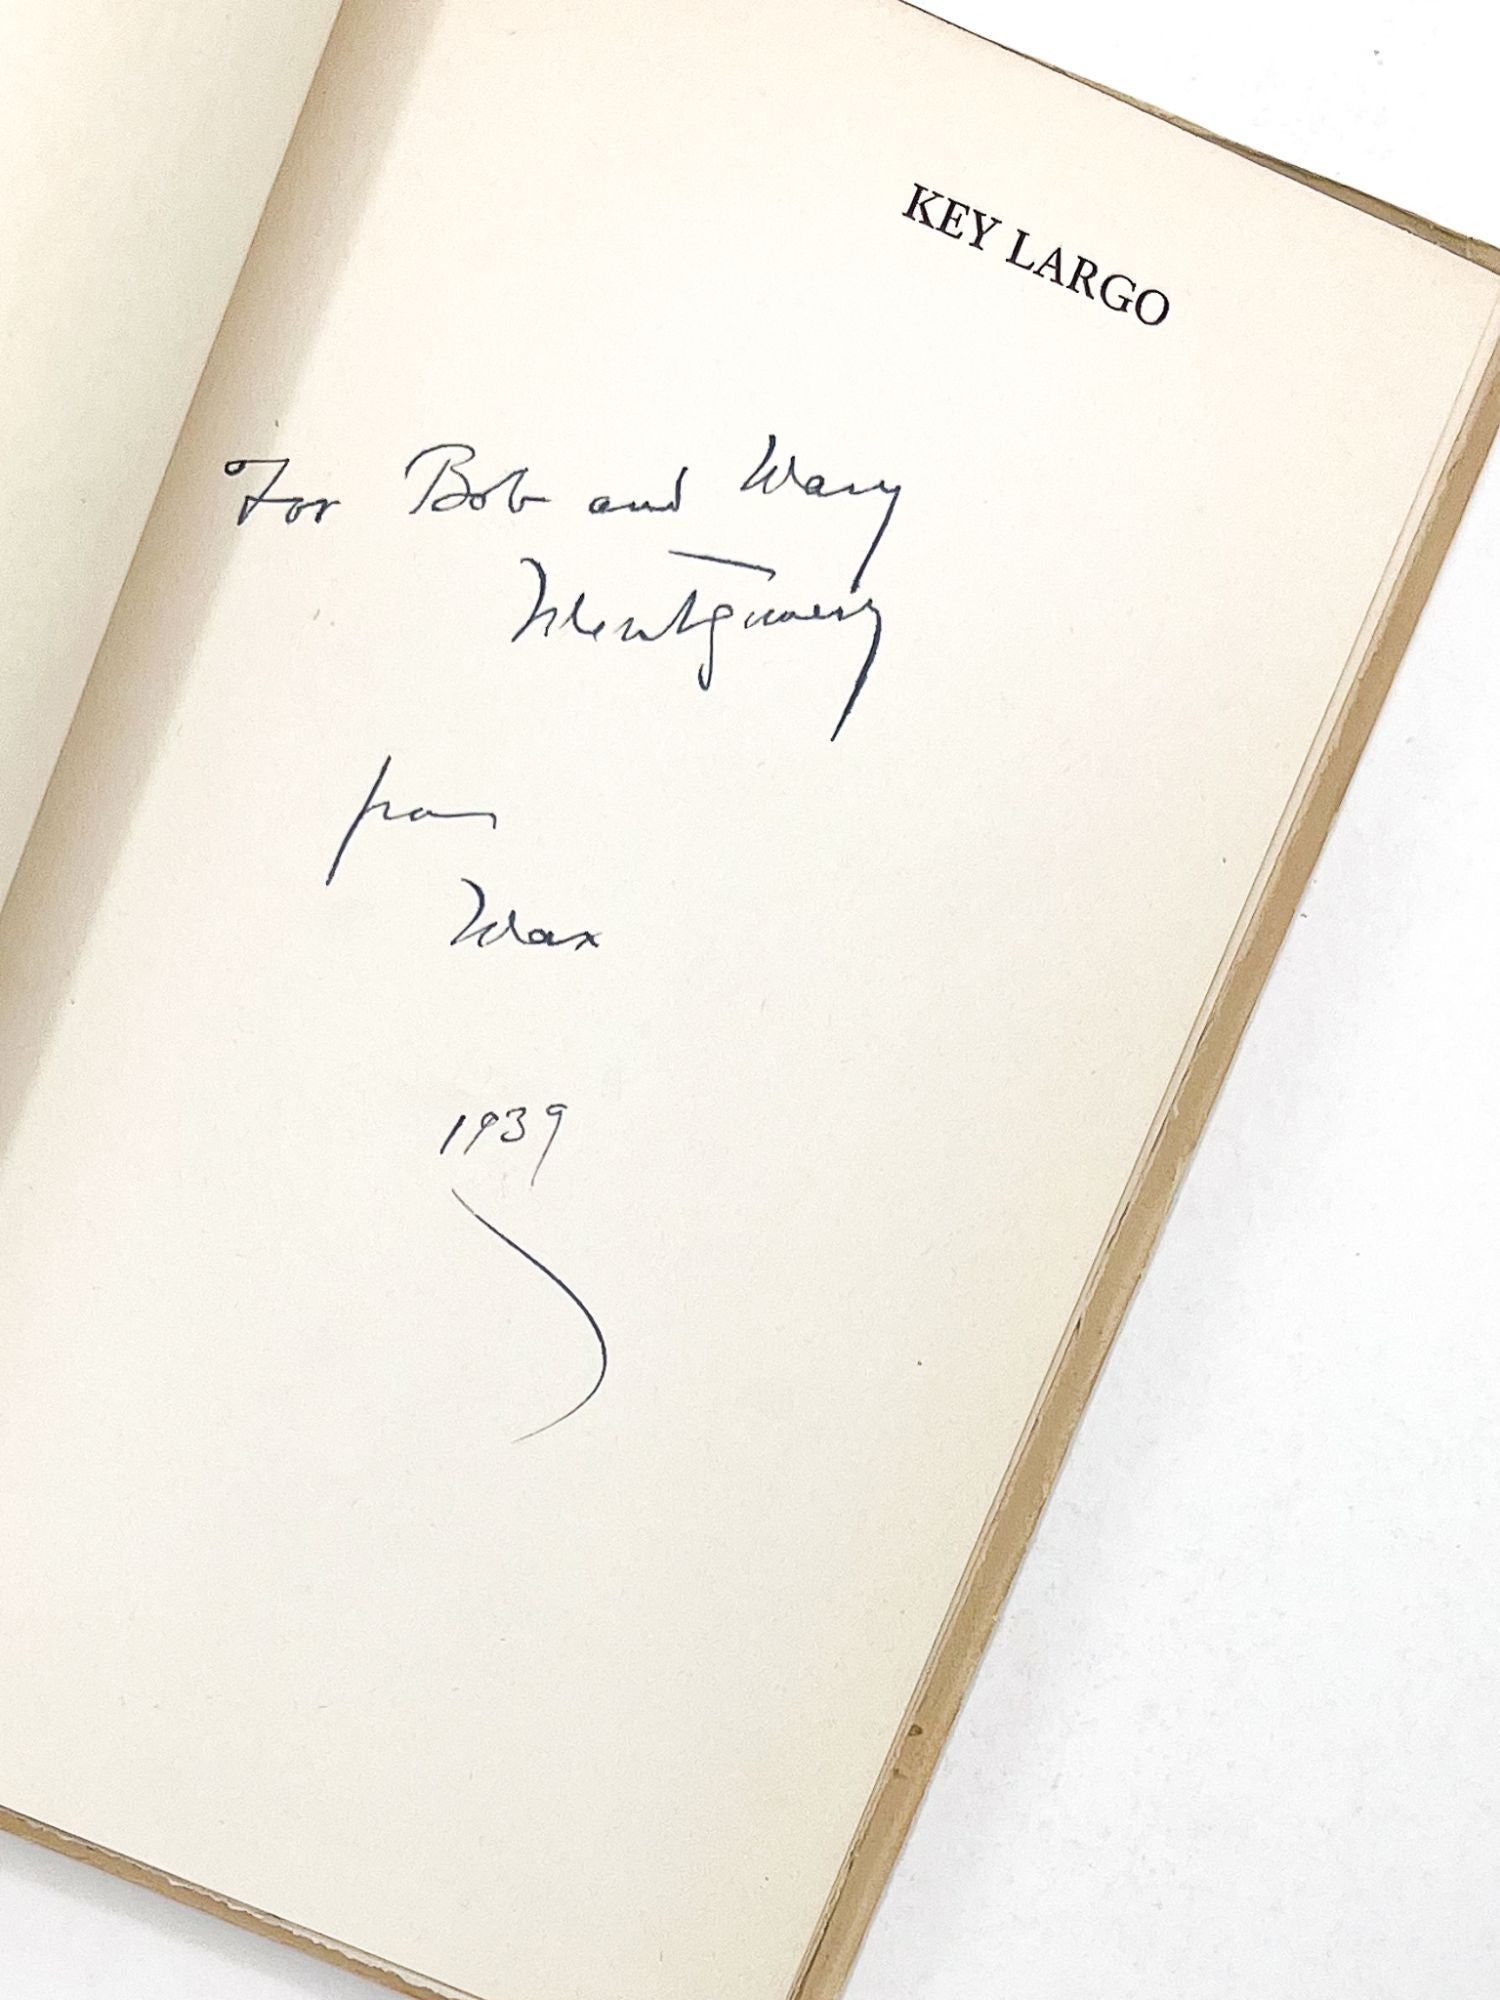 KEY LARGO
For Bob and Mary
Montgomery
from
Max
1939